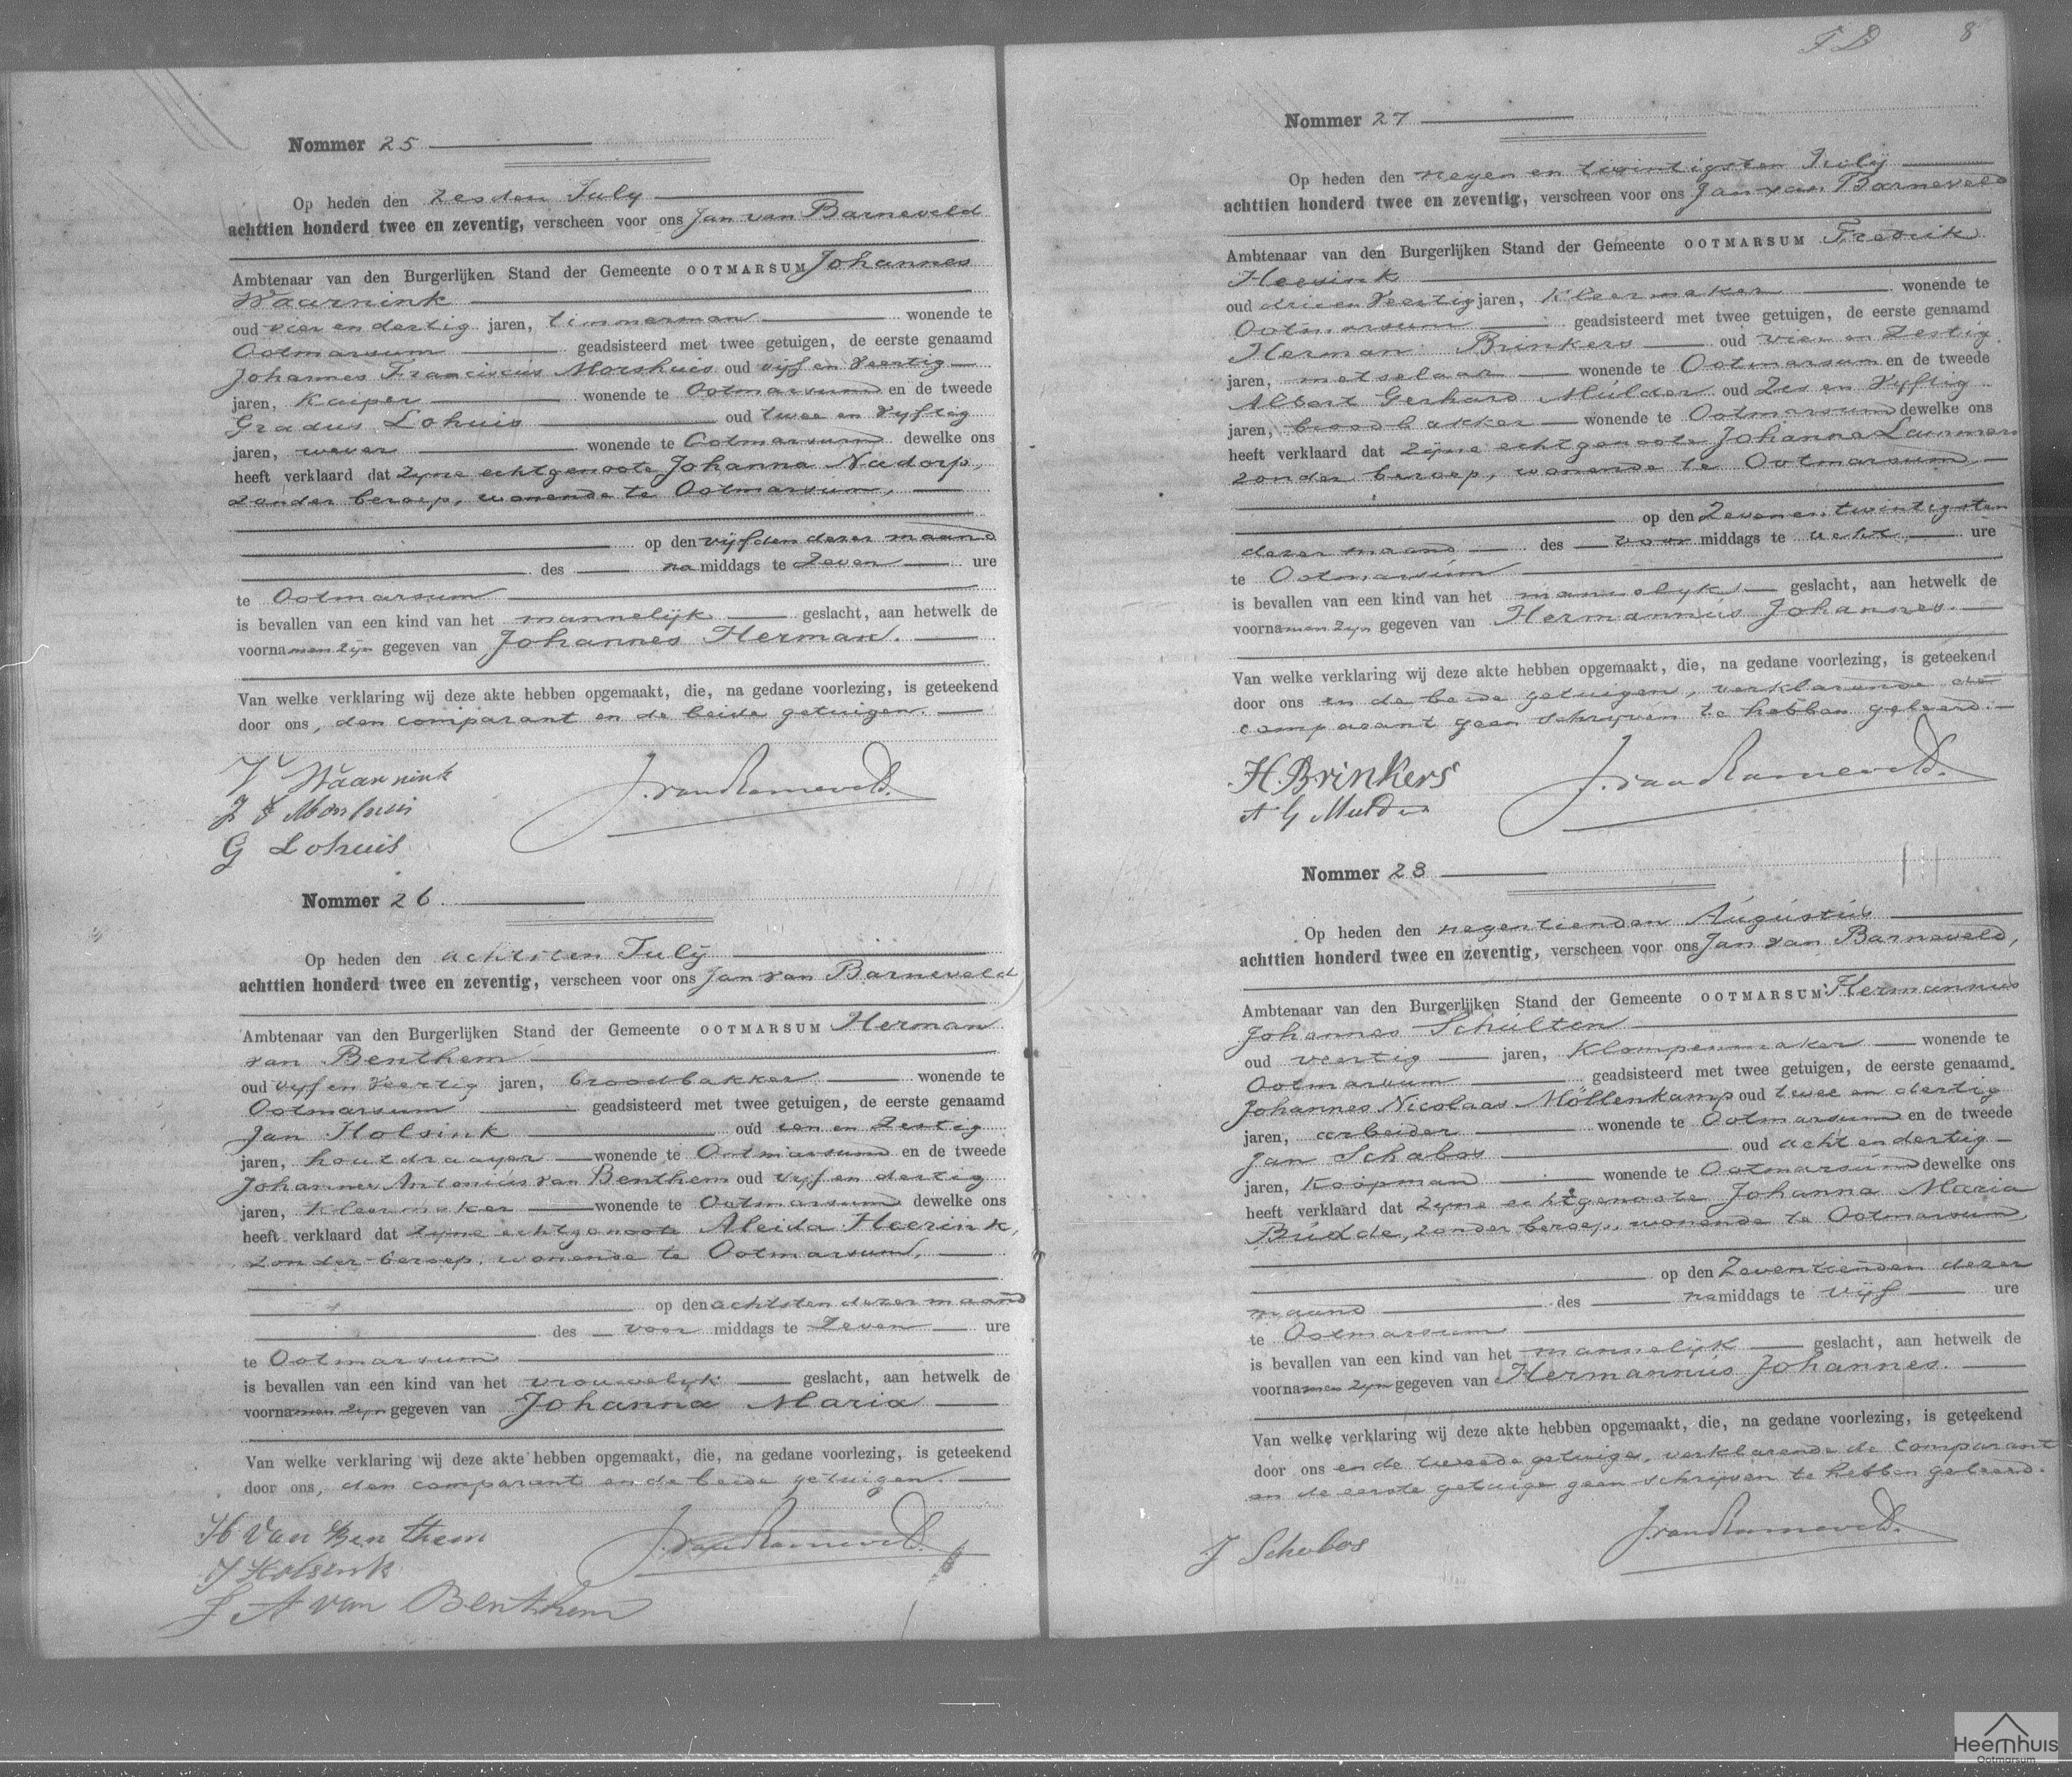 Nommer 25
Op heden den zesden July
achttien honderd twee en zeventig, verscheen voor ons Jan van Barneveld
Ambtenaar van den Burgerlijken Stand der Gemeente OOTMARSUM Johannes
Waarnink
oud vier en dertig jaren, timmerman wonende te
Ootmarsum geadsisteerd met twee getuigen, de eerste genaamd
Johannes Franciscus Morshuis oud vijf en veertig
jaren, Kuiper wonende te Ootmarsum en de tweede
Gradus Lohuis oud twee en vyftig
jaren, wever wonende te Ootmarsum dewelke ons
heeft verklaard dat zyne echtgenoote Johanna Nadorp,
zonder beroep, wonende te Ootmarsum,
op den vijfden dezer maand
des na middags te zeven ure
te Ootmarsum
is bevallen van een kind van het mannelijk geslacht, aan hetwelk de
voornamen zijn gegeven van Johannes Herman.
Van welke verklaring wij deze akte hebben opgemaakt, die, na gedane voorlezing, is geteekend
door ons, den comparant en de beide getuigen.
J Waarnink
J F Morshuis
J. van Barneveld.
G Lohuis
Nommer 26
Op heden den achtsten July
achttien honderd twee en zeventig, verscheen voor ons Jan van Barneveld
Ambtenaar van den Burgerlijken Stand der Gemeente OOTMARSUM Herman
van Benthem
oud vyf en veertig jaren, broodbakker wonende te
Ootmarsum geadsisteerd met twee getuigen, de eerste genaamd
Jan Holsink oud een en zestig
jaren, houtdraayer wonende te Ootmarsum en de tweede
Johannes Antonius van Benthem oud vyf en dertig
jaren, Kleermaker wonende te Ootmarsum dewelke ons
heeft verklaard dat zyne echtgenoote Aleida Heerink,
zonder beroep, wonende te Ootmarsum,
op den achtsten dezer maand
des voor middags te zeven ure
te Ootmarsum
is bevallen van een kind van het vrouwelyk geslacht, aan hetwelk de
voornamen zyn gegeven van Johanna Maria
Van welke verklaring wij deze akte hebben opgemaakt, die, na gedane voorlezing, is geteekend
door ons, den comparant en de beide getuigen.
H van Benthem
J. van Barneveld.
J Holsink
J A van Benthem
8
Nommer 27
Op heden den negen en twintigsten July
achttien honderd twee en zeventig, verscheen voor ons Jan van Barneveld
Ambtenaar van den Burgerlijken Stand der Gemeente OOTMARSUM Fredrik
Heesink
oud drie en veertig jaren, Kleermaker wonende te
Ootmarsum geadsisteerd met twee getuigen, de eerste genaamd
Herman Brinkers oud vier en zestig
jaren, metselaar wonende te Ootmarsum en de tweede
Albert Gerhard Mulder oud zes en vyftig
jaren, broodbakker wonende te Ootmarsum dewelke ons
heeft verklaard dat zyne echtgenoote Johanna Lammers
zonder beroep, wonende te Ootmarsum,
op den zeven en twintigsten
dezer maand des voor middags te acht ure
te Ootmarsum
is bevallen van een kind van het mannelyk geslacht, aan hetwelk de
voornamen zyn gegeven van Hermannus Johannes.
Van welke verklaring wij deze akte hebben opgemaakt, die, na gedane voorlezing, is geteekend
door ons en de beide getuigen, verklarende de
comparant geen schryven te hebben geleerd.
H. Brinkers
J. van Barneveld.
A G Mulder
Nommer 28
Op heden den negentienden Augustus
achttien honderd twee en zeventig, verscheen voor ons Jan van Barneveld,
Ambtenaar van den Burgerlijken Stand der Gemeente OOTMARSUM Hermannus
Johannes Schulten
oud veertig jaren, Klompenmaker wonende te
Ootmarsum geadsisteerd met twee getuigen, de eerste genaamd
Johannes Nicolaas Möllenkamp oud twee en dertig
jaren, arbeider wonende te Ootmarsum en de tweede
Jan Schabos oud acht en dertig
jaren, Koopman wonende te Ootmarsum dewelke ons
heeft verklaard dat zyne echtgenoote Johanna Maria
Budde, zonder beroep, wonende te Ootmarsum,
op den zeventienden dezer
maand des na middags te vyf ure
te Ootmarsum
is bevallen van een kind van het mannelyk geslacht, aan hetwelk de
voornamen zyn gegeven van Hermannus Johannes.
Van welke verklaring wij deze akte hebben opgemaakt, die, na gedane voorlezing, is geteekend
door ons en de tweede getuige, verklarende de comparant
en de eerste getuige geen schryven te hebben geleerd.
J Schabos
J. van Barneveld.
Heemhuis
Ootmarsum